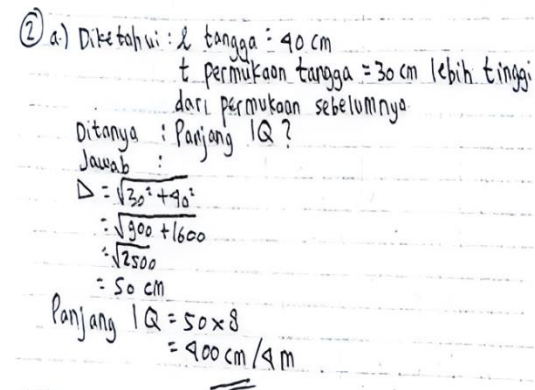 ② a.) Diketahui : l tangga = 40 cm
t permukaan tangga = 30 cm lebih tinggi
dari permukaan sebelumnya
Ditanya : Panjang IQ ?
Jawab :
D = √30² + 40²
= √900 + 1600
= √2500
= 50 cm
Panjang IQ = 50 x 8
= 400 cm / 4 m